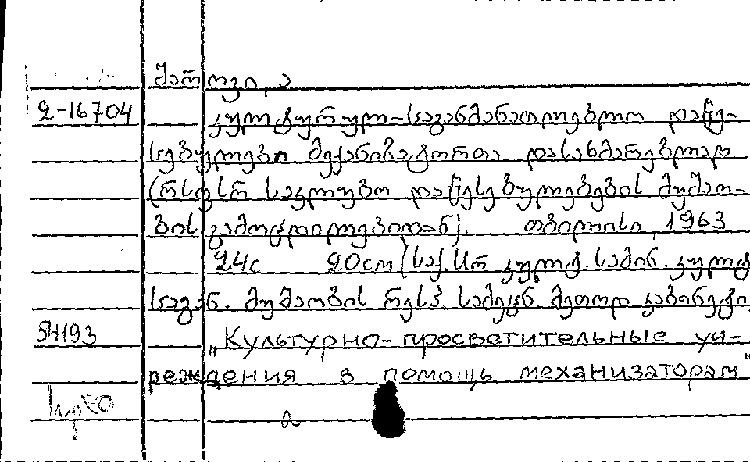 შაროვი, ა
2-16704 კულტურულ-საგანმანათლებლო დაწე-
სებულებები მექანიზატორთა დასახმარებლად
(რსფსრ საკლუბო დაწესებულებების მუშაო-
ბის გამოცდილებიდან). თბილისი, 1963
24с 20см (საქ. სსრ კულტ. სამინ. კულტ
საგან. მუშაობის რესპ. სამეცნ. მეთოდ. კაბინეტი
54193 „Культурно-просветительные уч-
реждения в помощь механизаторам"